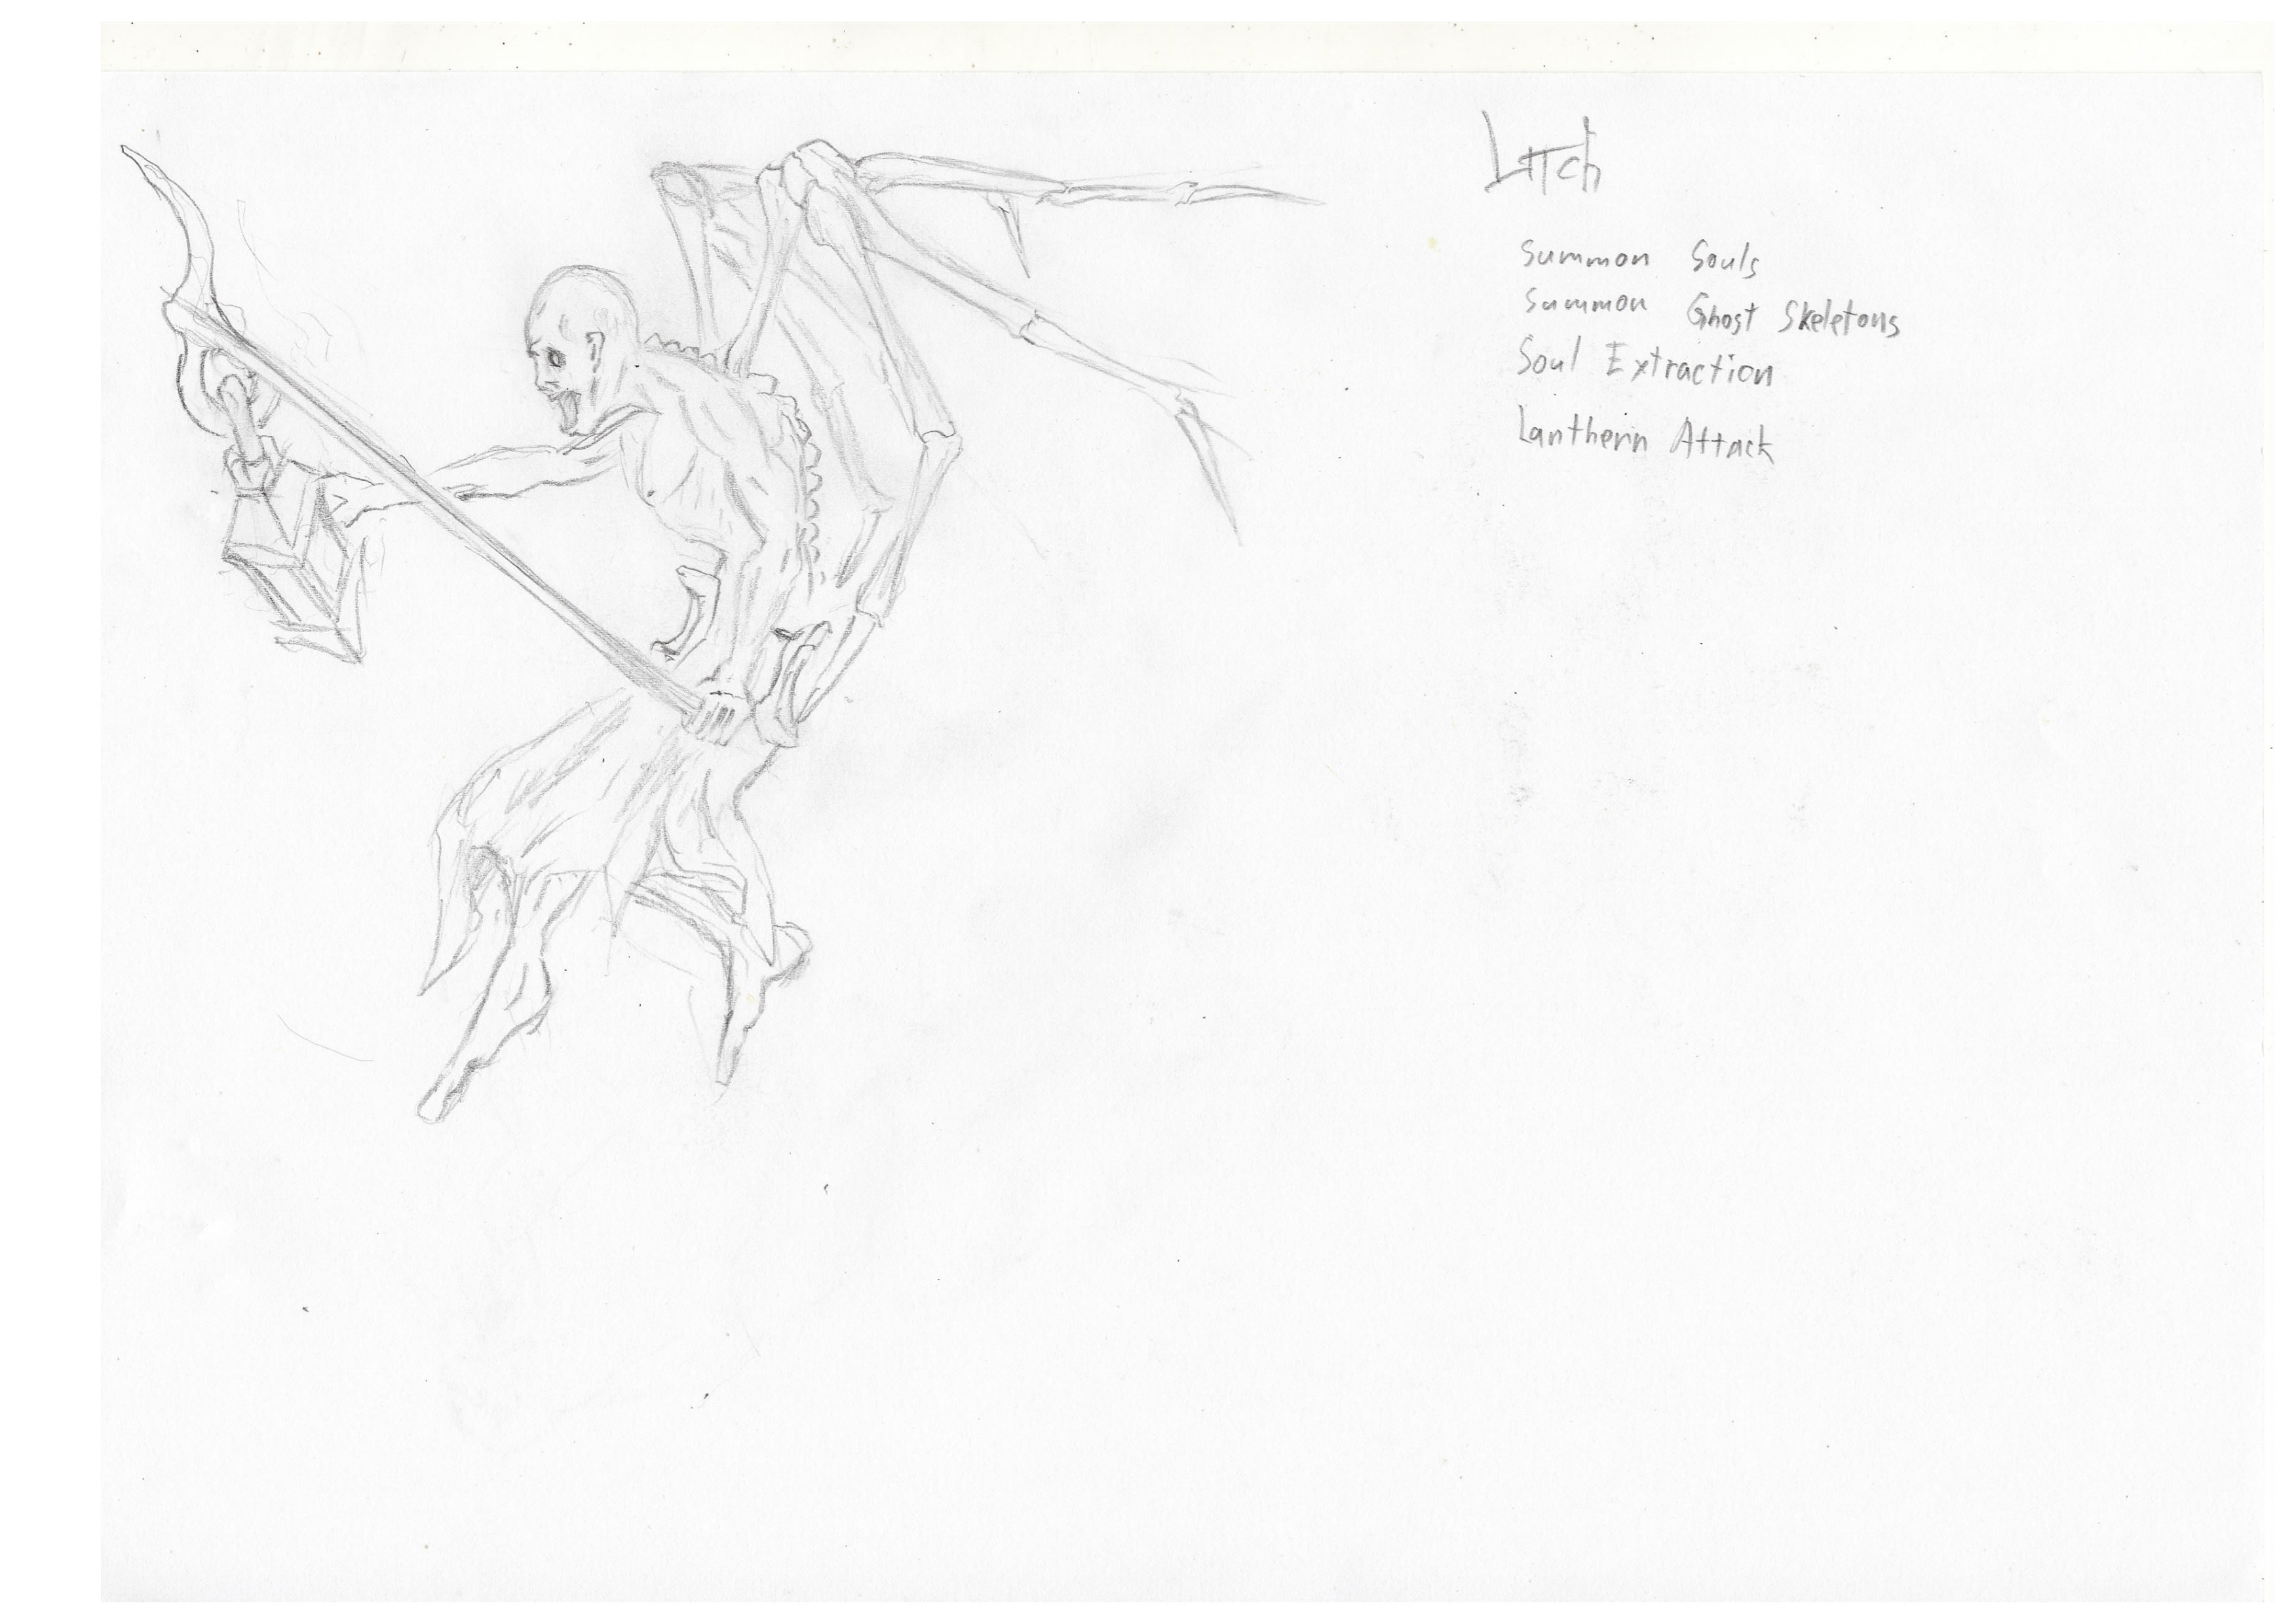 Litch
Summon Souls
Summon Ghost Skeletons
Soul Extraction
Lanthern Attack